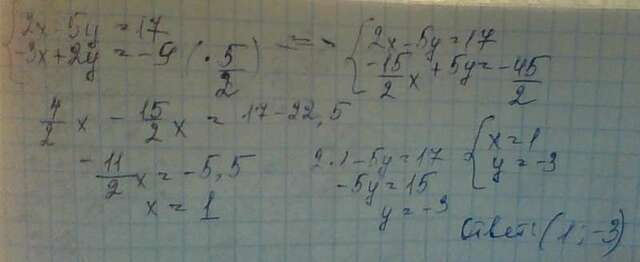 {2x-5y=17
-3x+2y=-9 (·5/2) =>
{2x-5y=17
-15/2x+5y=-45/2
4/2x - 15/2x = 17-22,5
-11/2x=-5,5
x=1
2·1-5y=17
-5y=15
y=-3
{x=1
y=-3
Ответ: (1;-3)